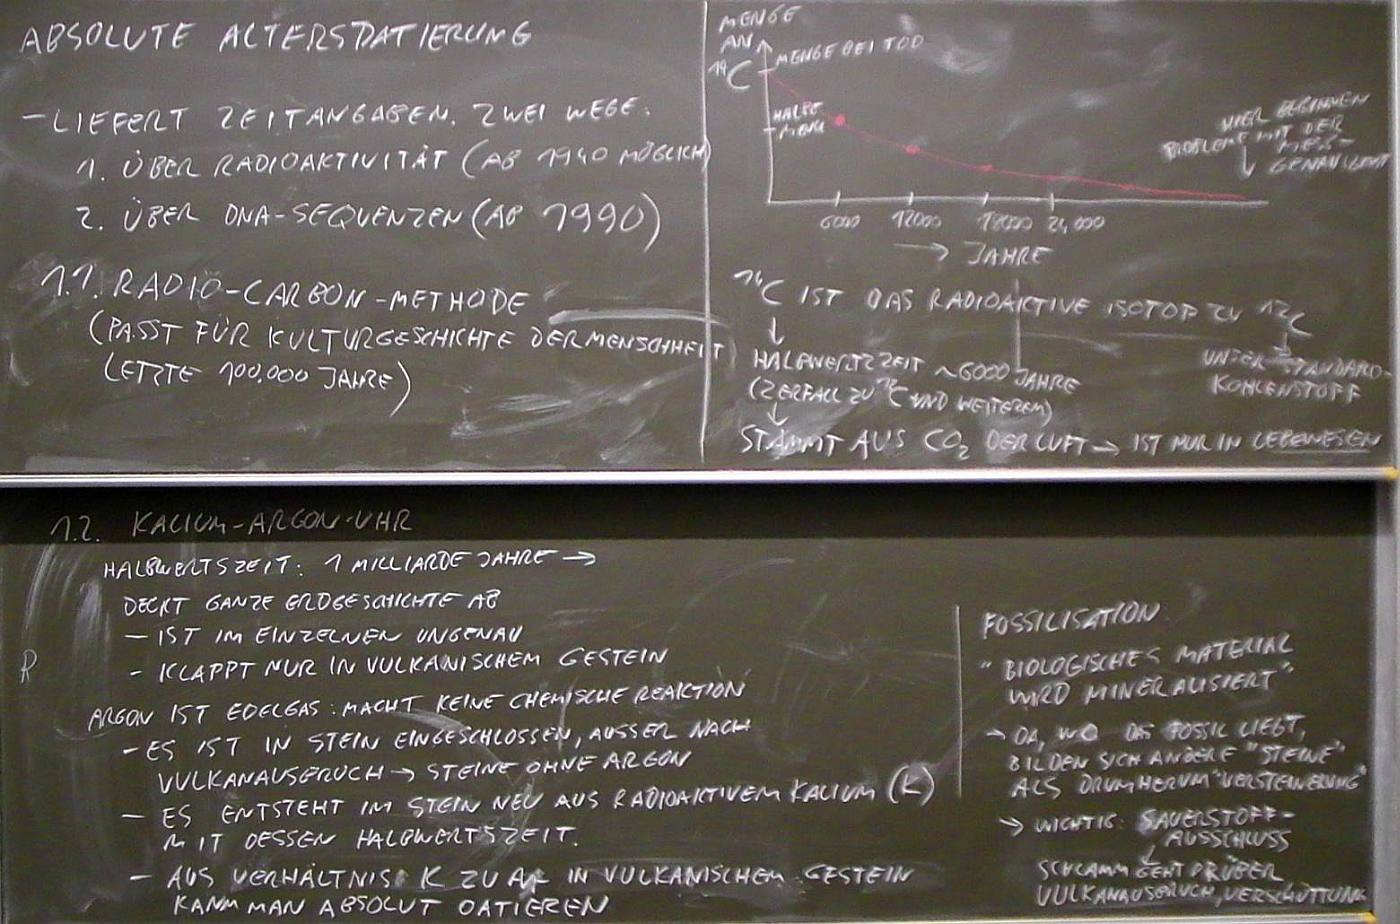 ABSOLUTE ALTERSDATIERUNG
- LIEFERT ZEITANGABEN. ZWEI WEGE:
1. ÜBER RADIOAKTIVITÄT (AB 1940 MÖGLICH)
2. ÜBER DNA-SEQUENZEN (AB 1990)
1.1. RADIO-CARBON-METHODE
(PASST FÜR KULTURGESCHICHTE DER MENSCHHEIT
LETZTE 100.000 JAHRE)
MENGE
AN
¹⁴C
MENGE BEI TOD
HALBE
MENGE
HIER BEGINNEN
PROBLEME MIT DER
MESS-
GENAUIGKEIT
6000 12000 18000 24,000
→ JAHRE
¹⁴C IST DAS RADIOAKTIVE ISOTOP ZU ¹²C
HALBWERTZEIT ~6000 JAHRE
(ZERFALL ZU ¹²C UND WEITEREM)
UNSER STANDARD-
KOHLENSTOFF
STAMMT AUS CO₂ DER LUFT → IST NUR IN LEBEWESEN
1.2. KALIUM-ARGON-UHR
HALBWERTSZEIT: 1 MILLIARDE JAHRE →
DECKT GANZE ERDGESCHICHTE AB
- IST IM EINZELNEN UNGENAU
- KLAPPT NUR IN VULKANISCHEM GESTEIN
R
ARGON IST EDELGAS: MACHT KEINE CHEMISCHE REAKTION
- ES IST IN STEIN EINGESCHLOSSEN, AUSSER NACH
VULKANAUSBRUCH → STEINE OHNE ARGON
- ES ENTSTEHT IM STEIN NEU AUS RADIOAKTIVEM KALIUM (K)
MIT DESSEN HALBWERTSZEIT.
- AUS VERHÄLTNIS K ZU Ar IN VULKANISCHEM GESTEIN
KANN MAN ABSOLUT DATIEREN
FOSSILISATION:
"BIOLOGISCHES MATERIAL
WIRD MINERALISIERT".
→ DA, WO DAS FOSSIL LIEGT,
BILDEN SICH ANDERE "STEINE"
ALS DRUMHERUM "VERSTEINERUNG"
→ WICHTIG: SAUERSTOFF-
AUSSCHLUSS
SCHLAMM GEHT DRÜBER
VULKANAUSBRUCH, VERSCHÜTTUNG